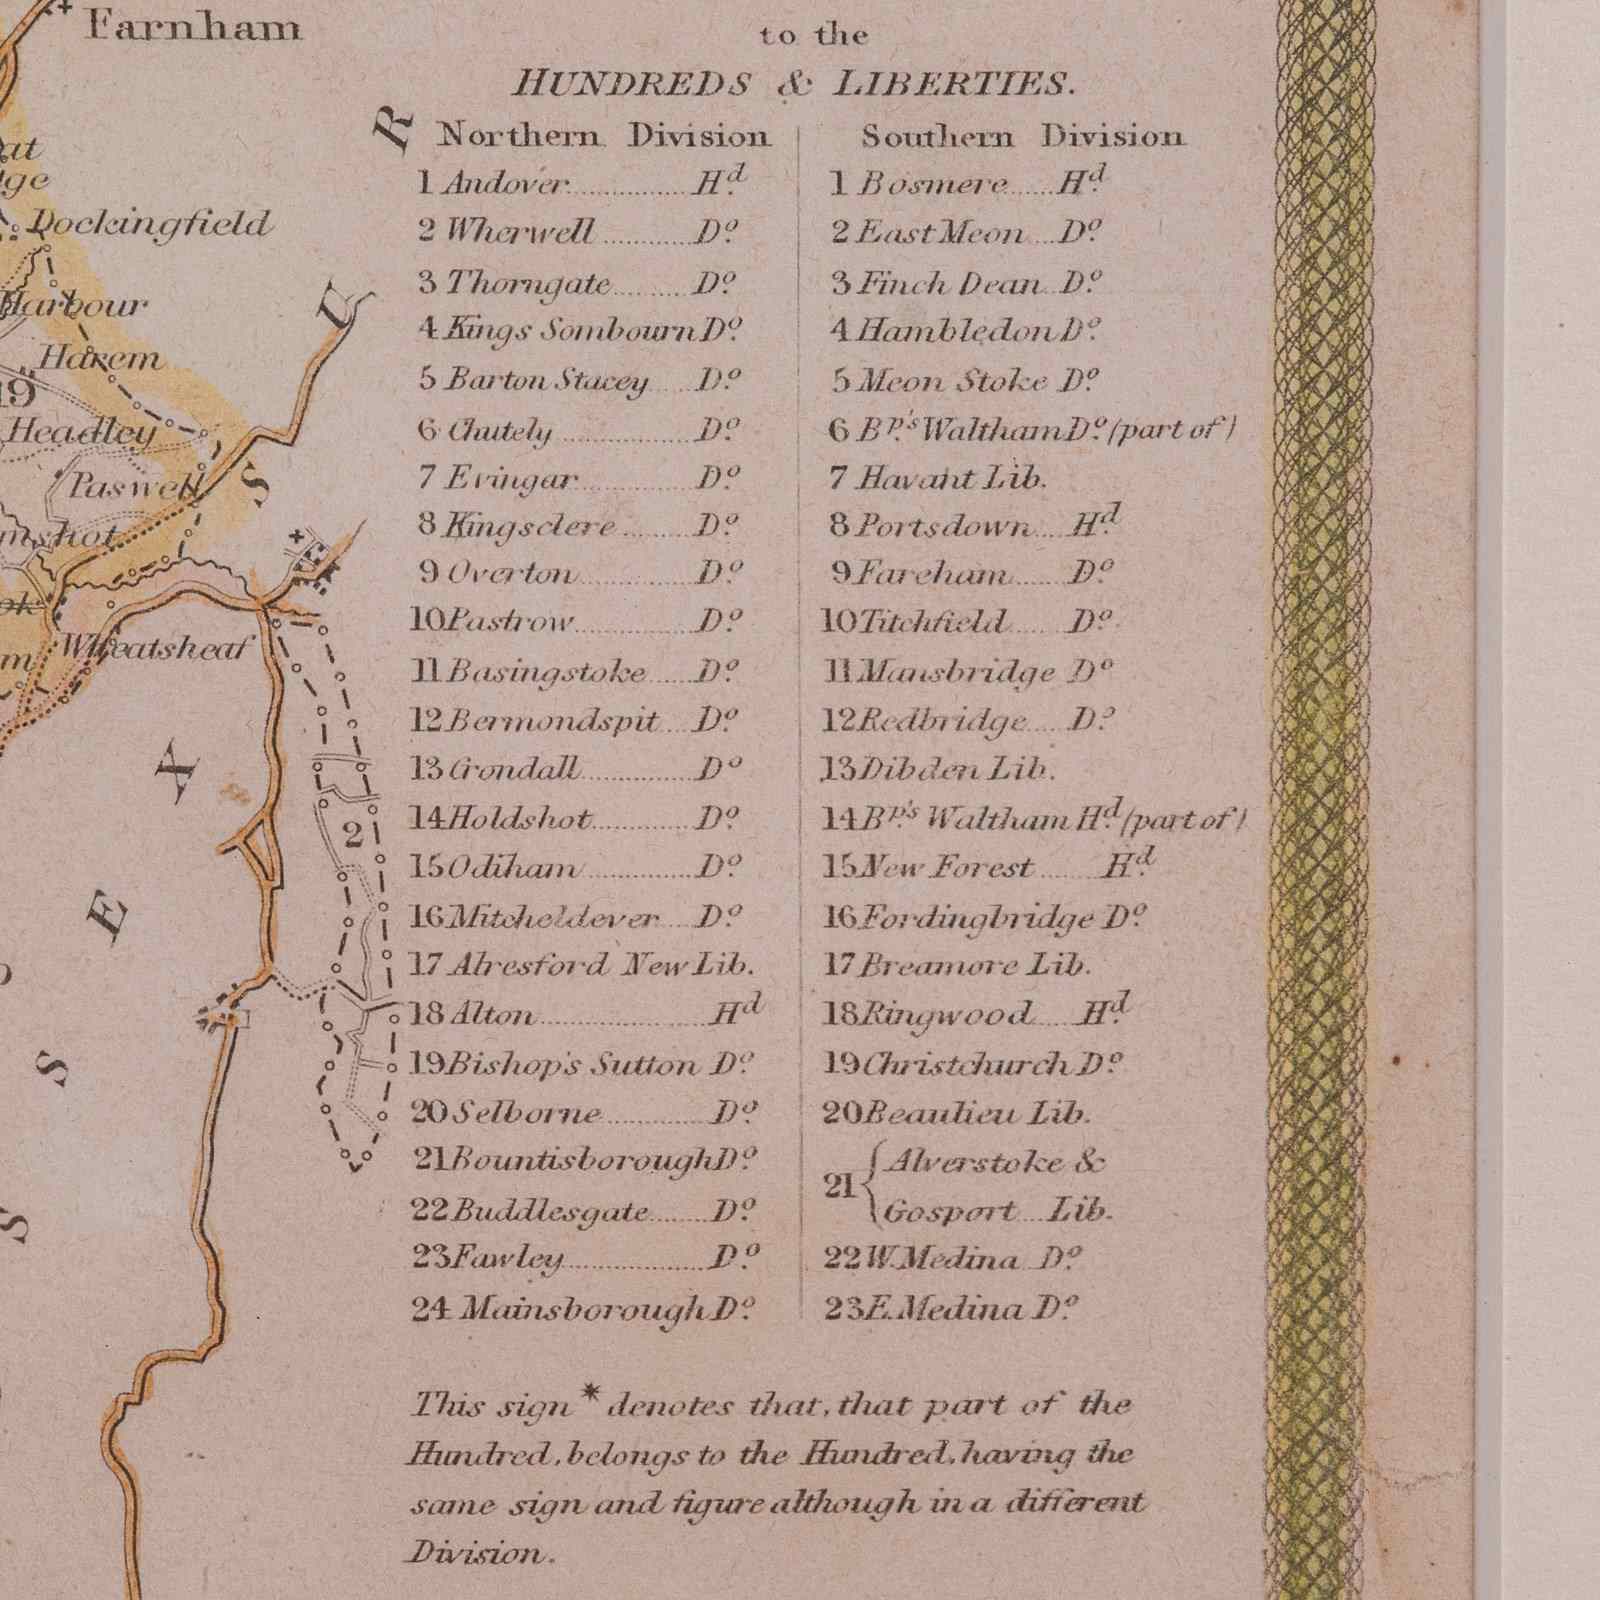 Farnham
to the
HUNDREDS & LIBERTIES.
Northern Division
1 Andover.............Hd.
2 Wherwell............Do.
3 Thorngate.........Do.
4 Kings Sombourn Do.
5 Barton Stacey....Do.
6 Chutely................Do.
7 Evingar...............Do.
8 Kingsclere.........Do.
9 Overton..............Do.
10 Pastrow..............Do.
11 Basingstoke......Do.
12 Bermondspit....Do.
13 Crondall..............Do
14 Holdshot.............Do.
15 Odiham..............Do.
16 Mitcheldever....Do.
17 Alresford New Lib.
18 Alton.....................Hd
19 Bishop's Sutton Do.
20 Selborne.............Do.
21 Bountisborough Do.
22 Buddlesgate.......Do.
23 Fawley.................Do.
24 Mainsborough Do.
Southern Division
1 Bosmere......Hd.
2 East Meon...Do.
3 Finch Dean..Do.
4 Hambledon Do.
5 Meon Stoke Do.
6 Bp's. Waltham Do. (part of)
7 Havant Lib.
8 Portsdown....Hd.
9 Fareham......Do.
10 Titchfield......Do.
11 Mansbridge Do
12 Redbridge....Do.
13 Dibden Lib.
14 Bp's. Waltham Hd. (part of)
15 New Forest......Hd.
16 Fordingbridge Do.
17 Breamore Lib.
18 Ringwood.....Hd.
19 Christchurch Do.
20 Beaulieu Lib.
21 { Alverstoke &
Gosport...Lib.
22 W. Medina Do.
23 E. Medina Do.
This sign * denotes that, that part of the
Hundred, belongs to the Hundred, having the
same sign and figure although in a different
Division.
Dockingfield
Harbour
Harem
19
Headley
Paswell
Wheatsheaf
2
R
U
S
X
E
S
S